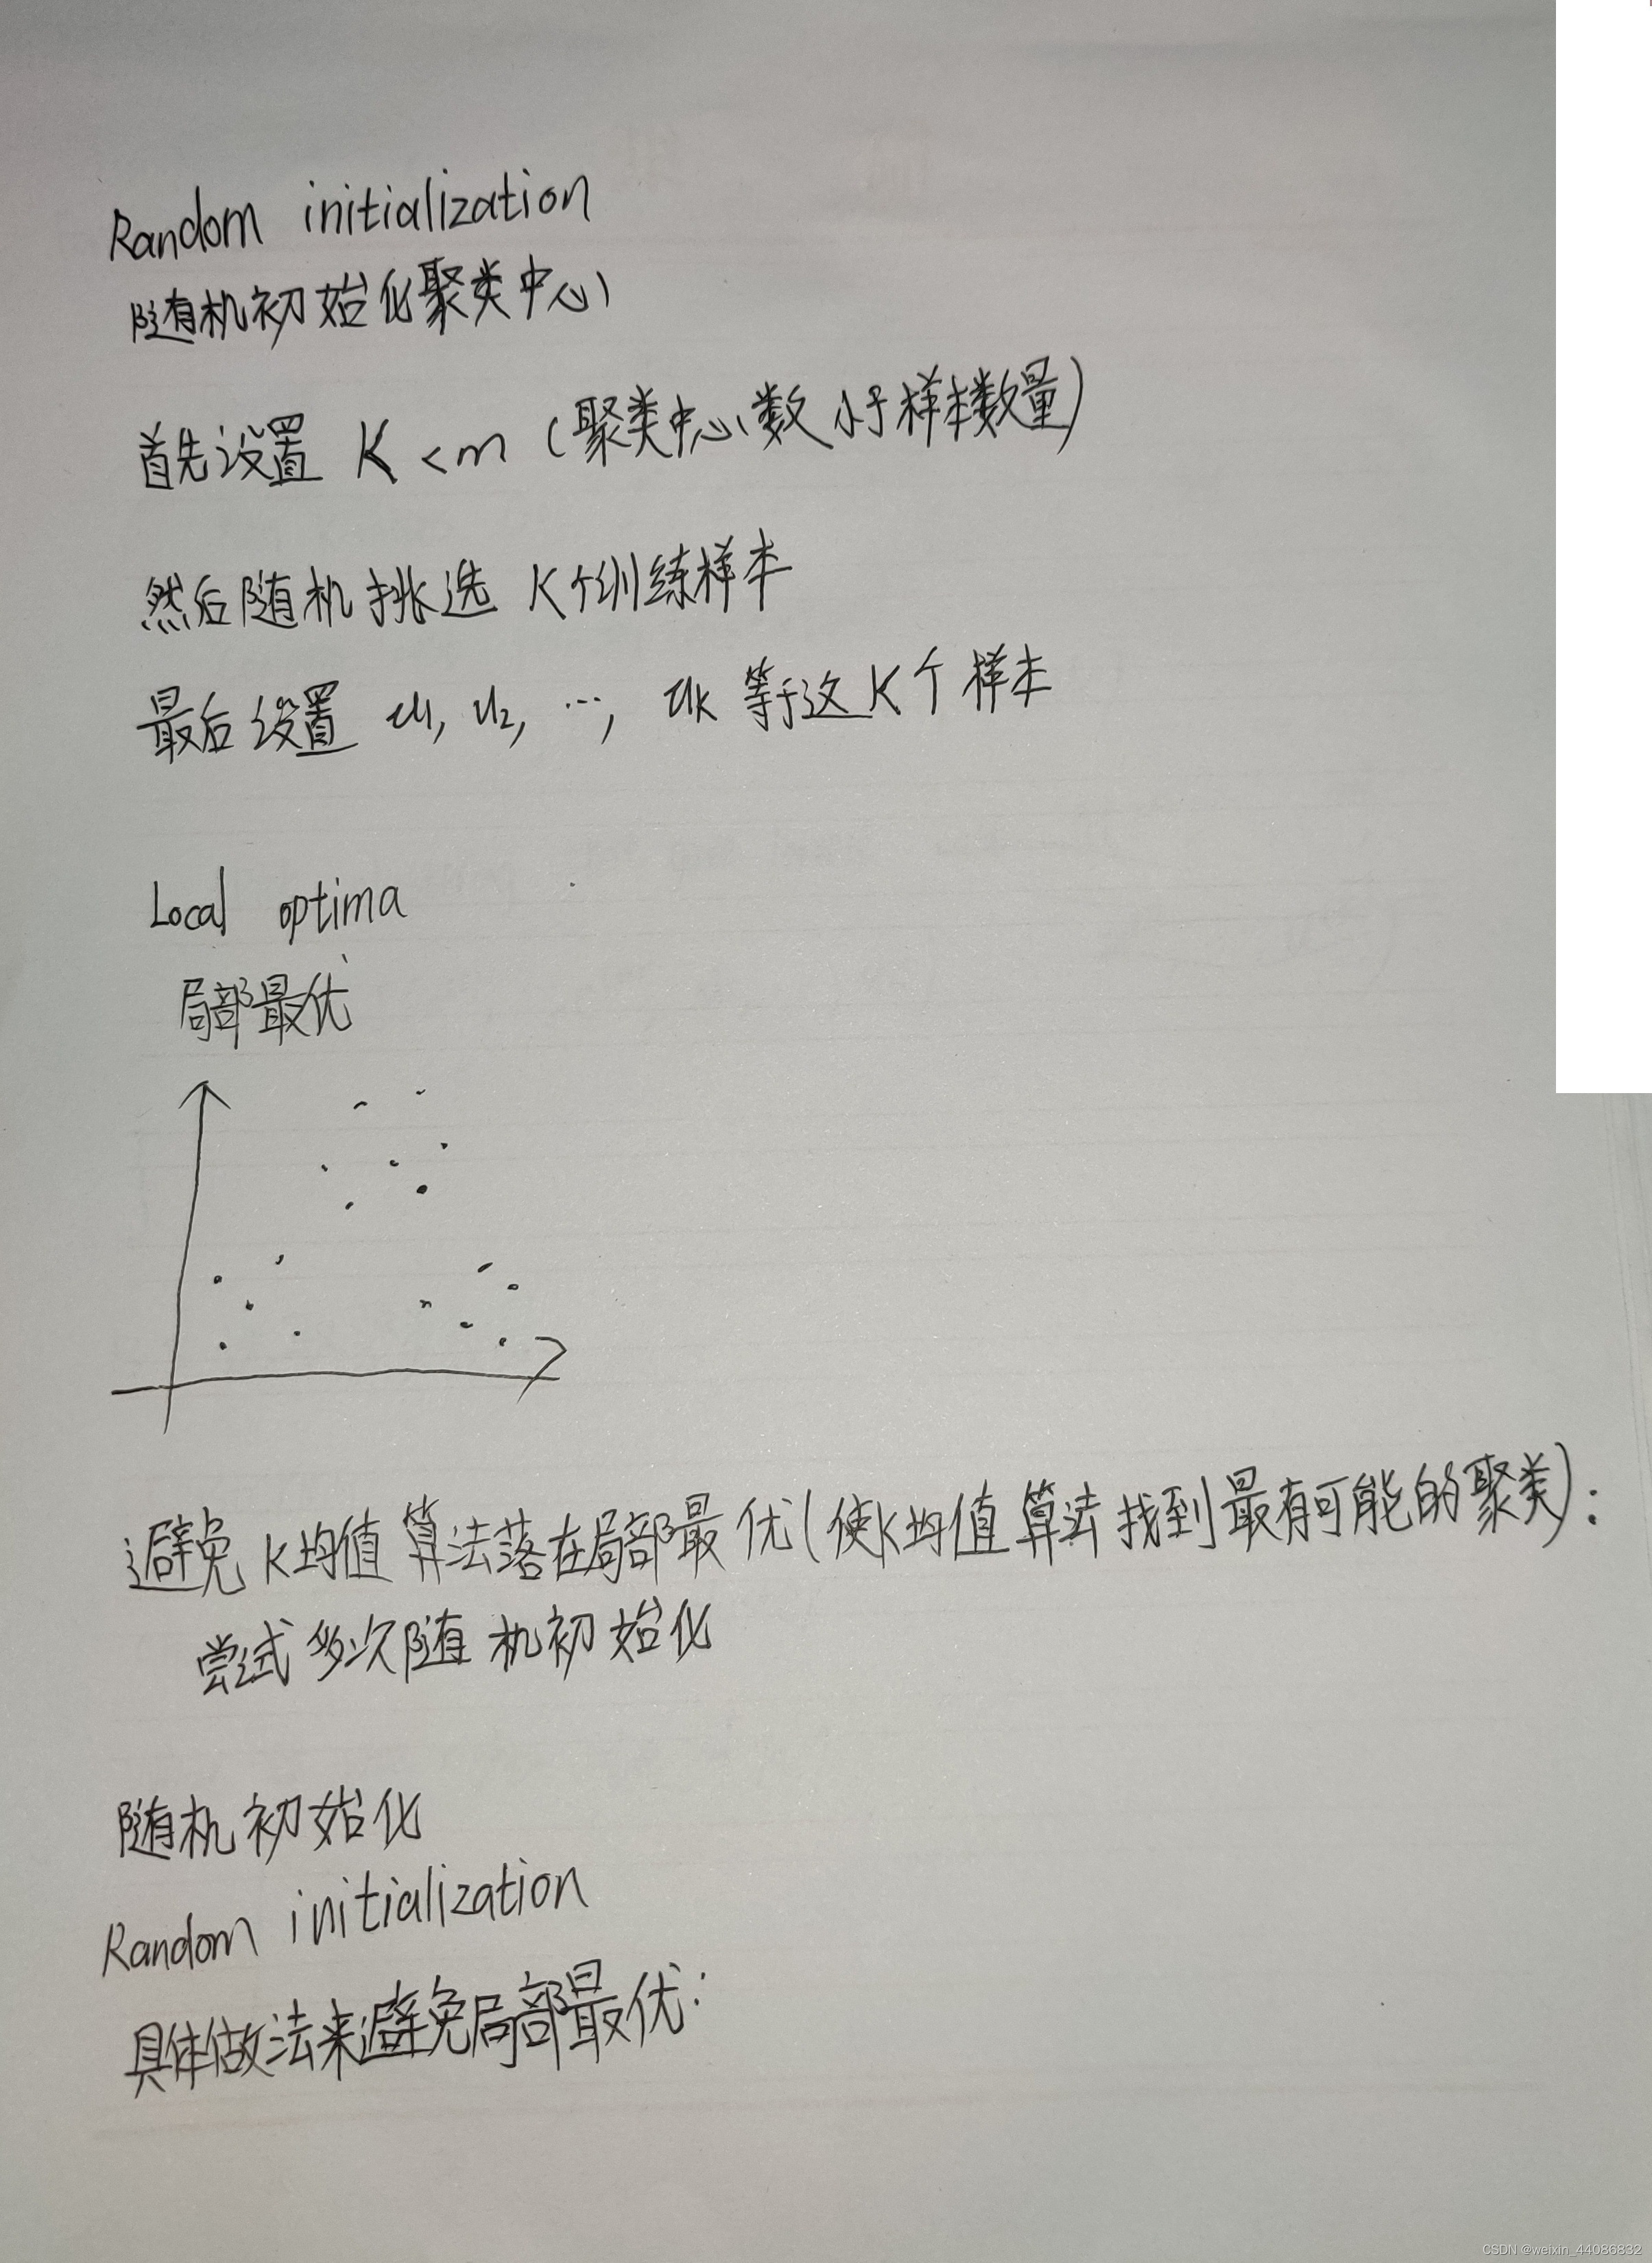 Random initialization
随机初始化聚类中心
首先设置 K < m (聚类中心数小于样本数量)
然后随机挑选 K个训练样本
最后设置 u1, u2, …, uk 等于这K个样本
Local optima
局部最优
避免K均值算法落在局部最优(使K均值算法找到最有可能的聚类):
尝试多次随机初始化
随机初始化
Random initialization
具体做法来避免局部最优:
CSDN @weixin_44086832